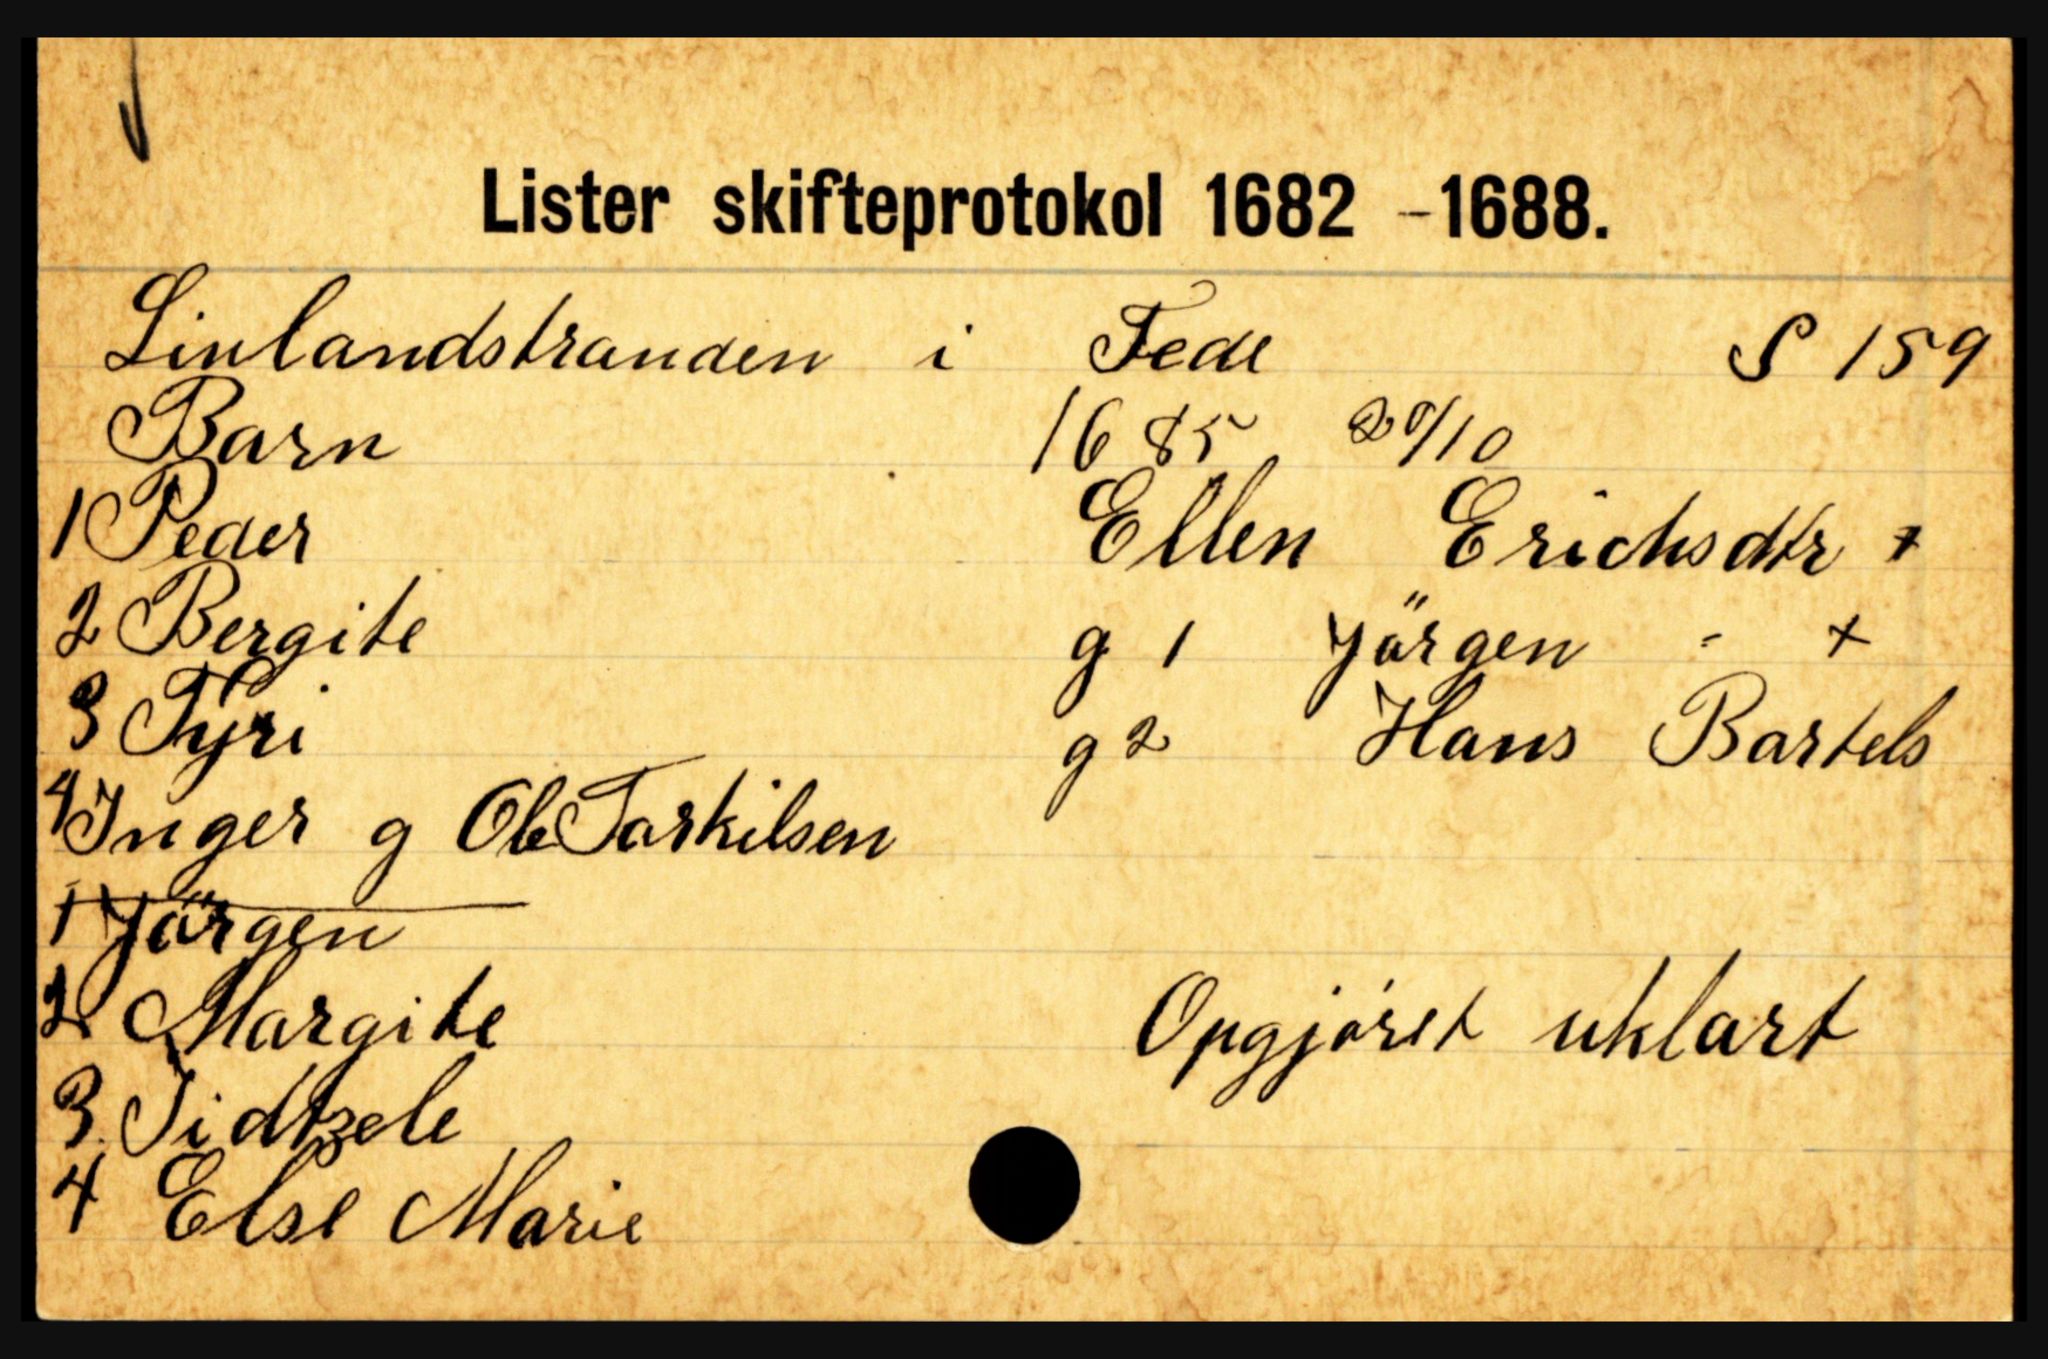 Lister skifteprotokol 1682 - 1688.
Linlandstranden i Fede S 159
Barn 1685 20/10
1 Peder Ellen Erichsdtr +
2 Bergite g 1 Jörgen - +
3 Tyri g 2 Hans Bartels
4 Inger g Ole Torkilsen
1 Jörgen
2 Margite Opgjöret uklart
3 Sidtzele
4 Else Marie